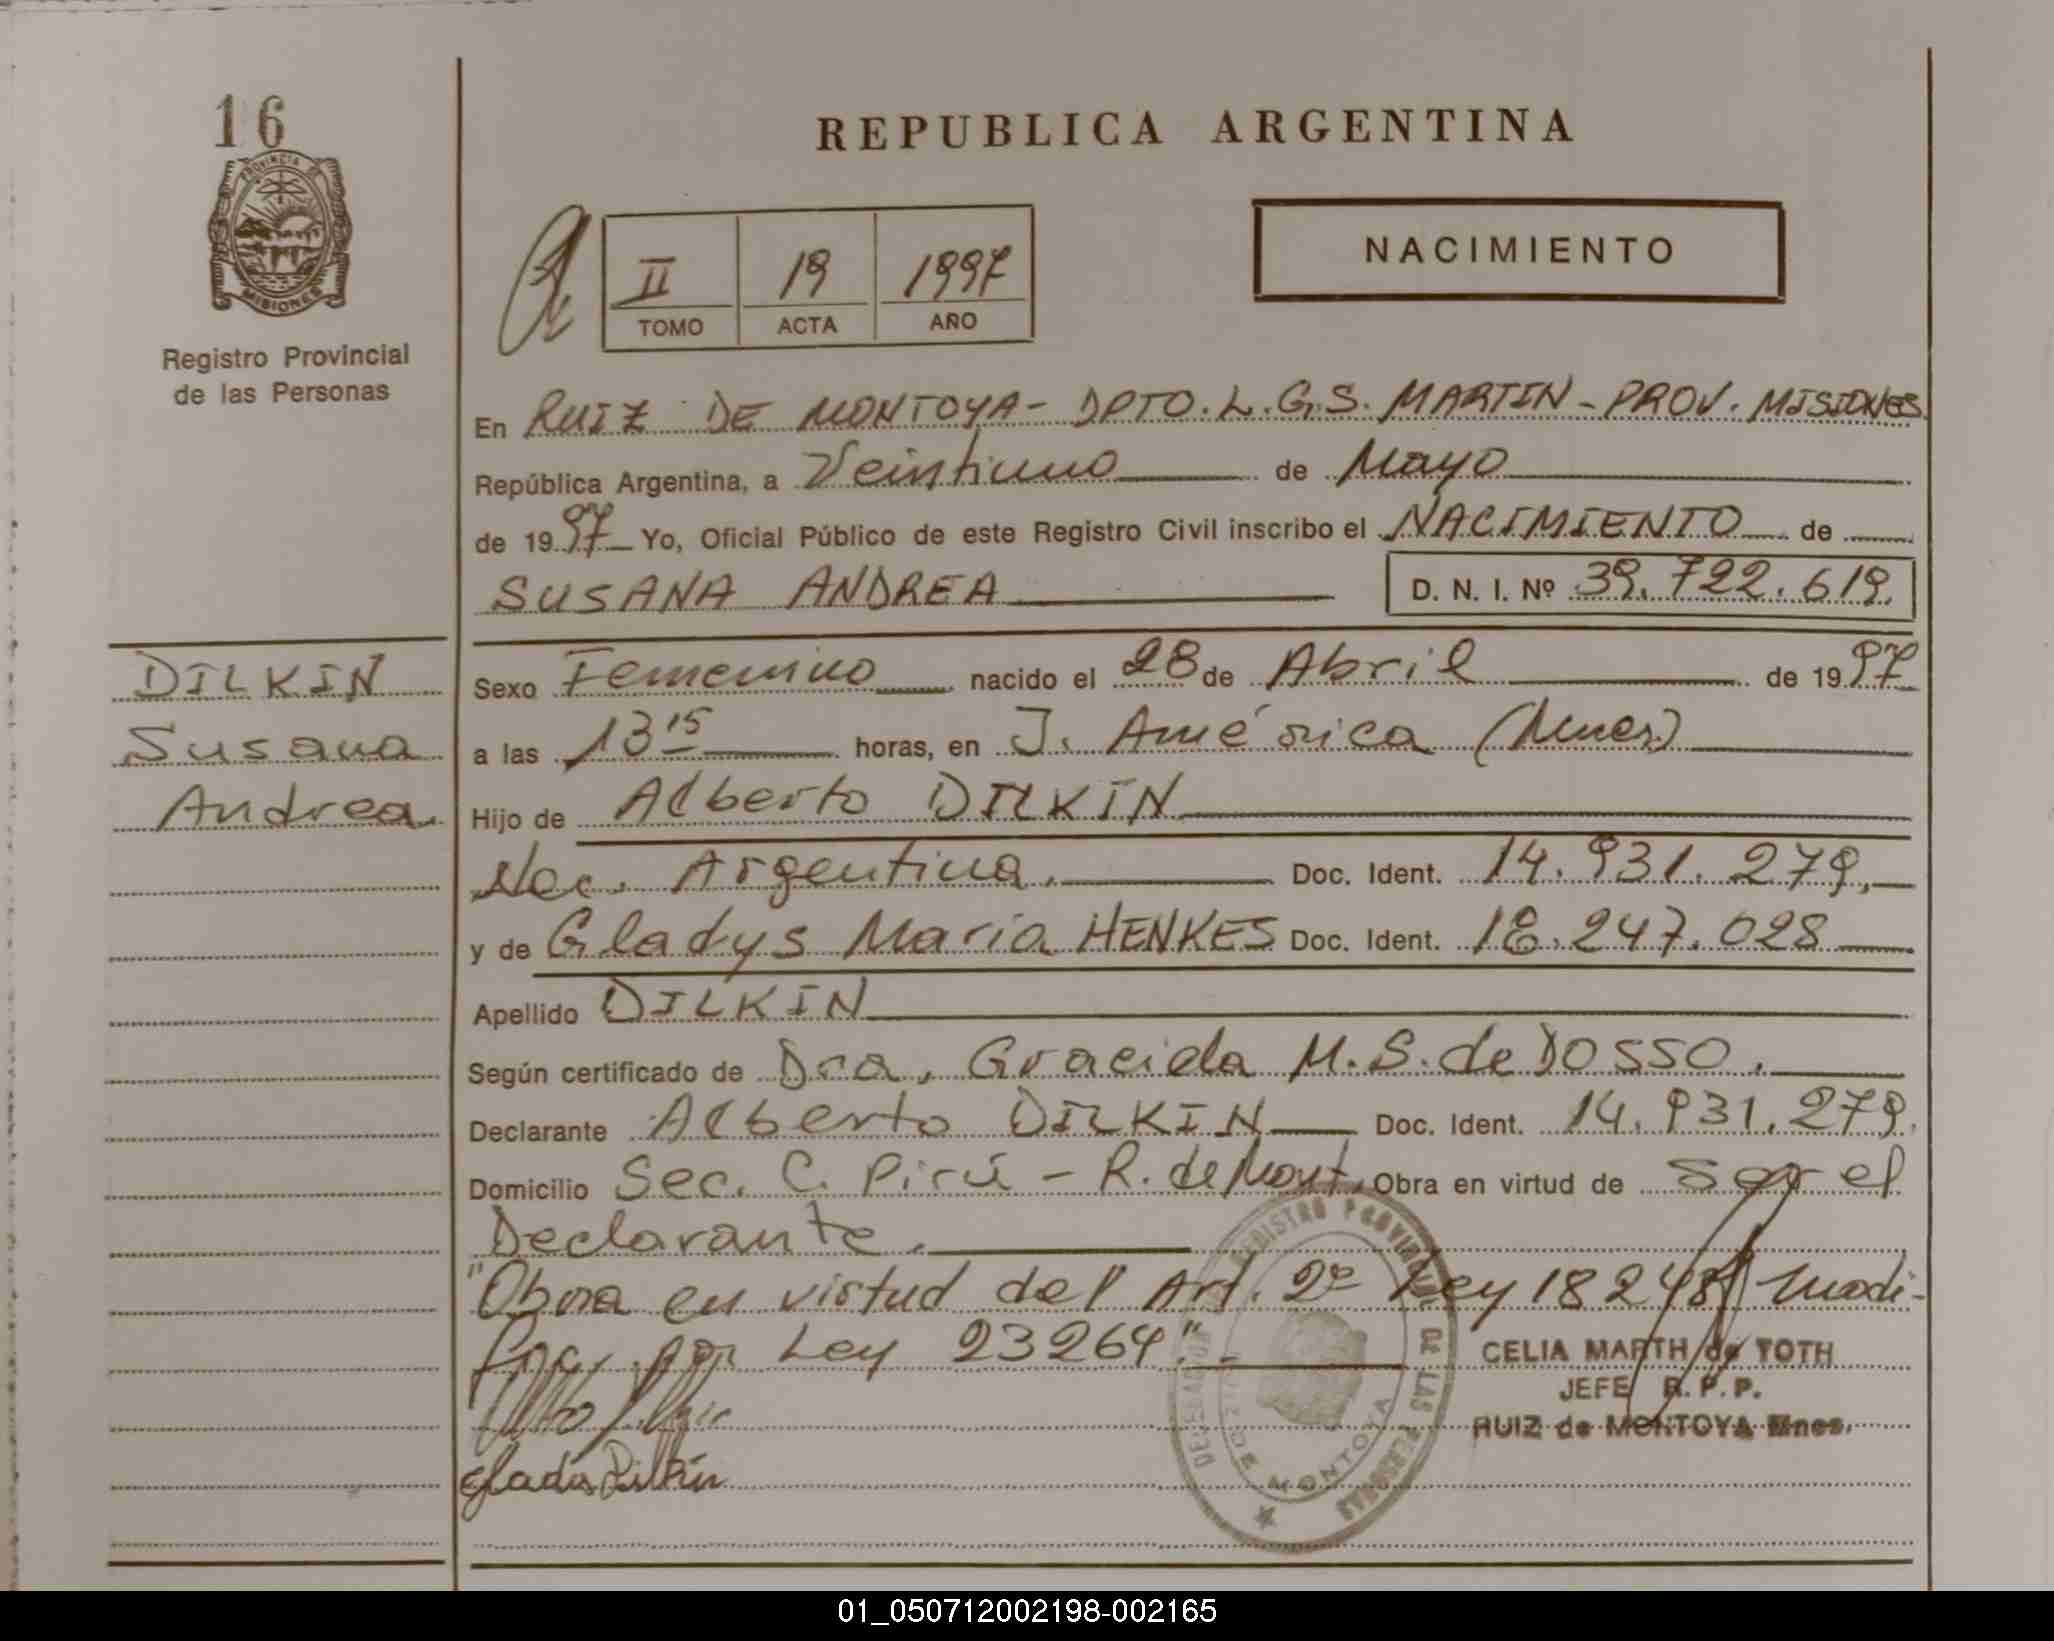 16
PROVINCIA DE
MISIONES
Registro Provincial
de las Personas
REPUBLICA ARGENTINA
II 19 1997
TOMO ACTA AÑO
NACIMIENTO
En RUIZ DE MONTOYA - DPTO. L. G. S. MARTIN - PROV. MISIONES.
República Argentina, a Veintiuno de Mayo
de 1997 Yo, Oficial Público de este Registro Civil inscribo el NACIMIENTO de
SUSANA ANDREA D. N. I. Nº 39.722.619.
DILKIN
Susana
Andrea.
Sexo Femenino nacido el 28 de Abril de 1997
a las 13 15 horas, en J. América (Mnes.)
Hijo de Alberto DILKIN
Nac. Argentina. Doc. Ident. 14.931.279,
y de Gladys María HENKES Doc. Ident. 18.247.028
Apellido DILKIN
Según certificado de Dra, Graciela M. S. de DOSSO.
Declarante Alberto DILKIN Doc. Ident. 14.931.279.
Domicilio Sec. C. Pirú - R. de Mont. Obra en virtud de ser el
Declarante.
"Obra en virtud del Art. 2º Ley 18248 modi-
fic. por Ley 23264".
CELIA MARTH de TOTH
JEFE R. P. P.
RUIZ de MONTOYA Mnes.
Gladis Dilkin
REGISTRO PROVINCIAL DE LAS PERSONAS
DE MONTOYA
01_050712002198-002165